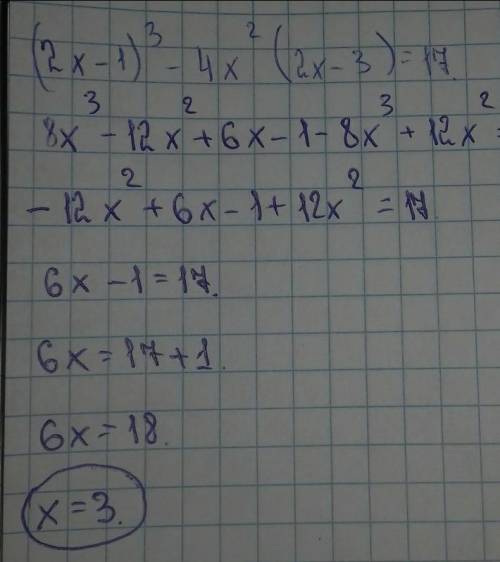 (2x-1)³ - 4x² (2x-3) = 17.
8x³ - 12x² + 6x - 1 - 8x³ + 12x² =
- 12x² + 6x - 1 + 12x² = 17.
6x - 1 = 17.
6x = 17 + 1.
6x = 18.
x = 3.